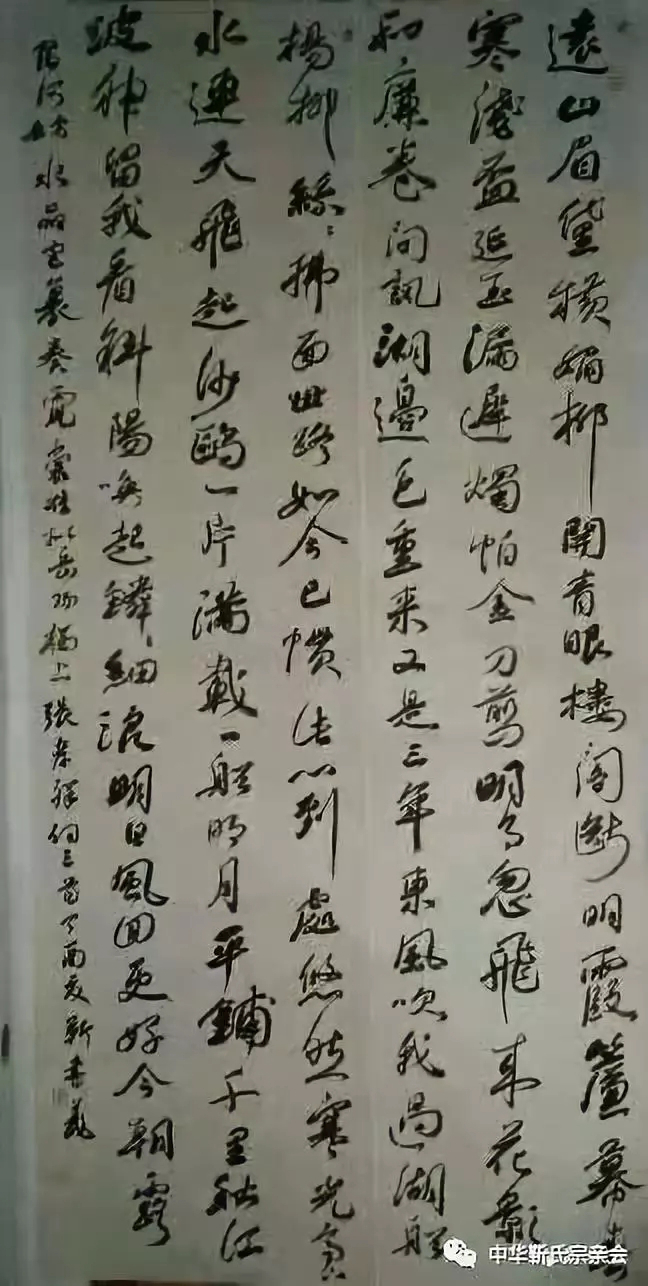 遠山眉黛橫媚柳開青眼樓閣斷明霞簾幕春
寒淺盃延玉漏遲燭怕金刀剪明月忽飛來花影
和廉卷問訊湖邊色重來又是三年東風吹我過湖船
楊柳絲絲拂面世路如今已慣此心到處悠然寒光亭下
水連天飛起沙鷗一片滿載一船明月平鋪千里秋江
波神留我看斜陽喚起鱗鱗細浪明日風回更好今朝露
宿何妨水晶宮裏奏霓裳準擬岳陽樓上張孝祥詞三首丁酉夏靳
中华靳氏宗亲会